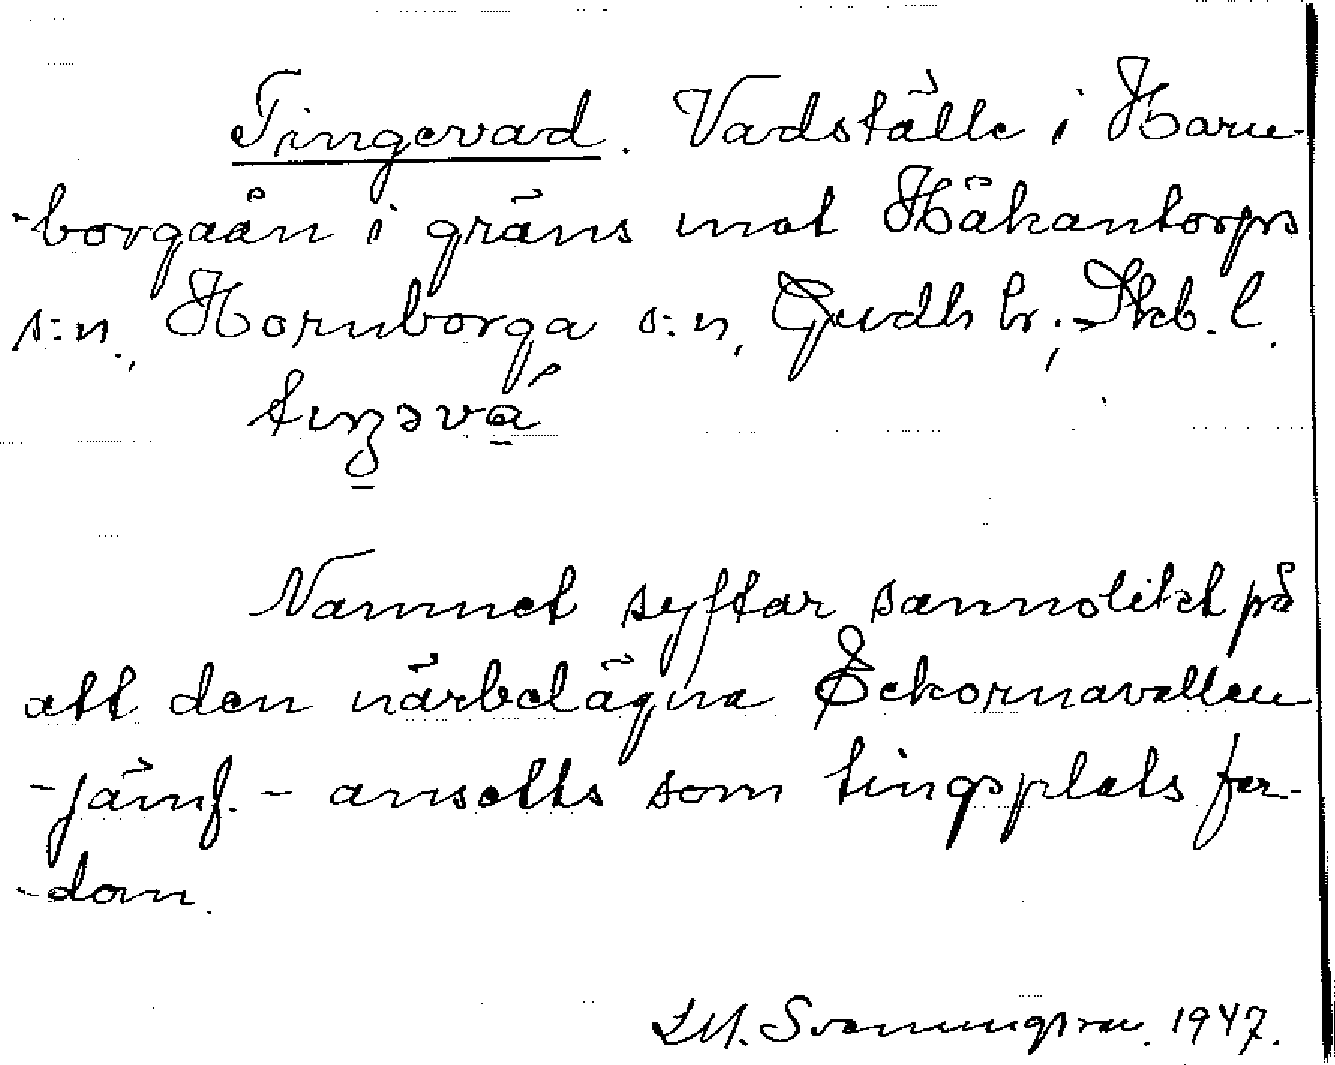 Tingevad. Vadställe i Horn-
-borgaån i gräns mot Håkantorps
s:n., Hornborga s:n, Gudh hr; Skb. l.
tıŋəvá
Namnet syftar sannolikt på
att den närbelägna Eckornavallen
- jämf. - ansetts som tingsplats for-
-dom.
Svenungsson. 1947.